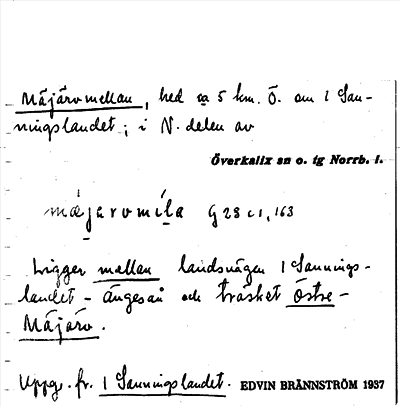 Mäjärvmellan, hed ca 5 km. Ö. om 1 San-
ningslandet; i N. delen av
Överkalix sn o. tg Norrb. l.
G 23 c 1, 163
Ligger mellan landsvägen 1 Sannings-
landet - Ängesån och träsket Östre-
Mäjärv.
Uppg. fr. 1 Sanningslandet. EDVIN BRÄNNSTRÖM 1937